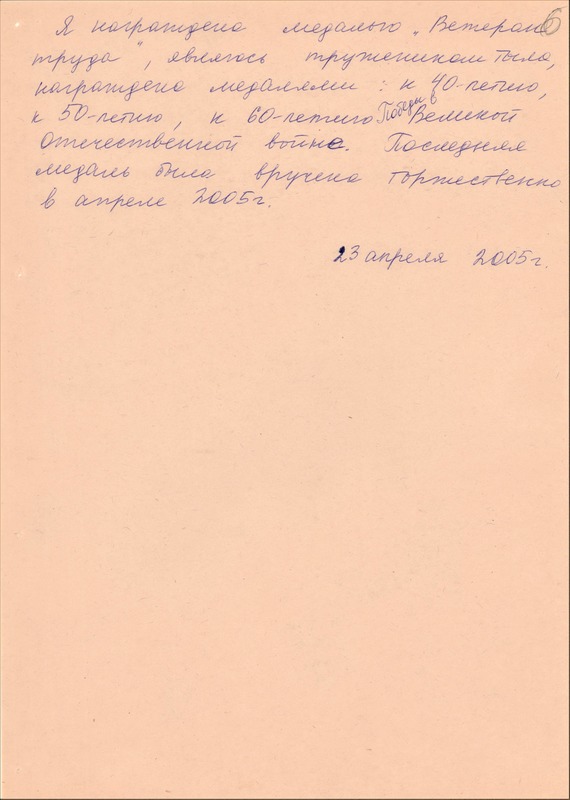 6
Я награждена медалью „Ветеран
труда", являюсь тружеником тыла,
награждена медалями: к 40-летию,
к 50-летию, к 60-летию Победы в Великой
Отечественной войне. Последняя
медаль была вручена торжественно
в апреле 2005г.
23 апреля 2005г.